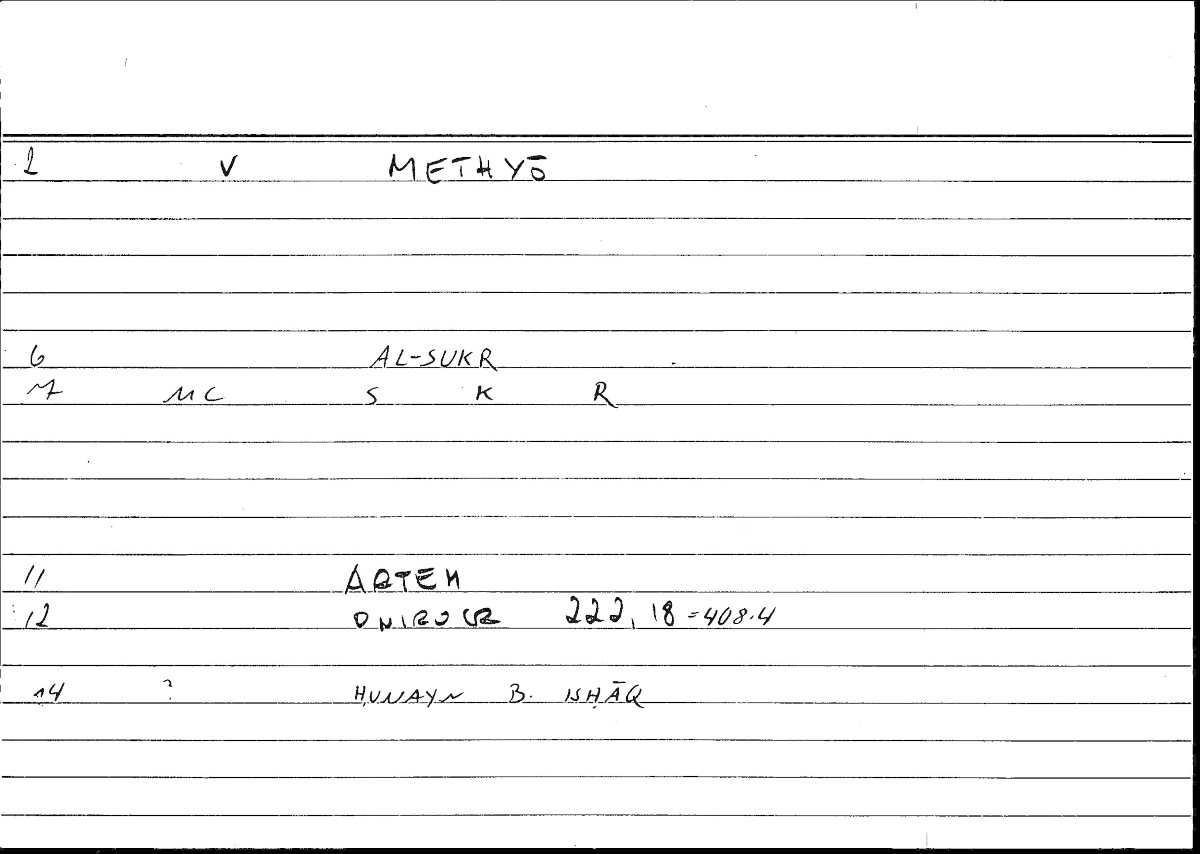 1 V METHYŌ
6 AL-SUKR
7 MC S K R
11 ARTEM
12 ONIROCR 222, 18 = 408.4
14 ? ḤUNAYN B. ISḤĀQ